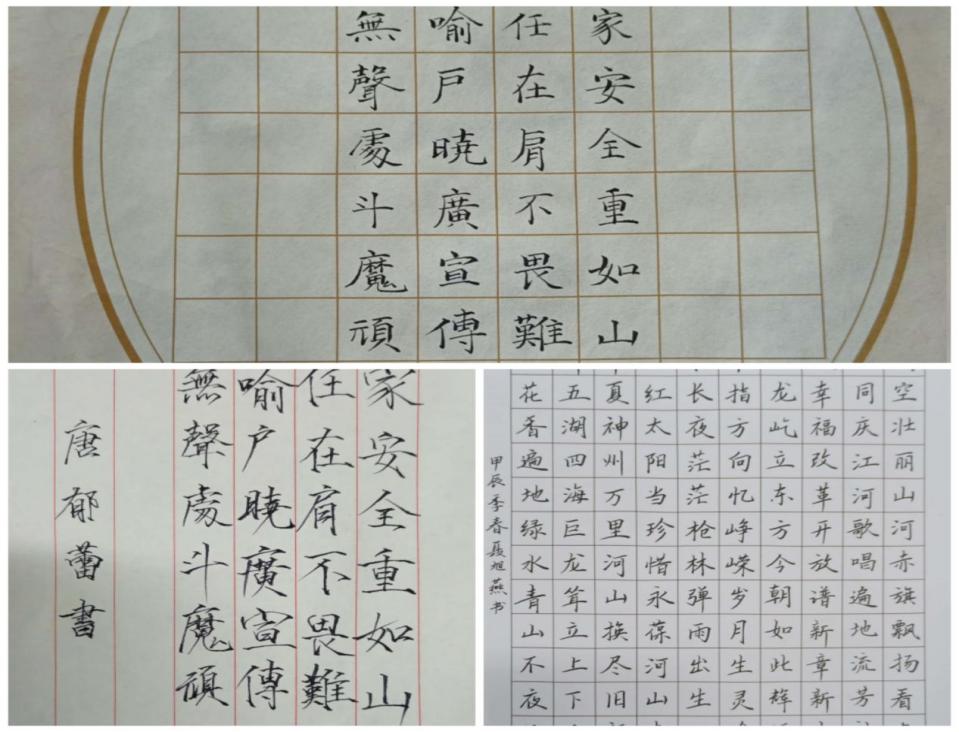 家安全重如山
任在肩不畏難
喻戶曉廣宣傳
無聲處斗魔頑
家安全重如山
任在肩不畏難
喻户曉廣宣傳
無聲處斗魔頑
唐郁蕾書
空壮丽山河赤旗飘扬看
同庆江河歌唱遍地流芳
幸福改革开放谱新章新
龙屹立东方今朝如此辉
指方向忆峥嵘岁月生灵
长夜茫茫枪林弹雨出生
红太阳当珍惜永葆河山
夏神州万里河山换尽旧
五湖四海巨龙耸立上下
花香遍地绿水青山不夜
甲辰季春聂旭燕书